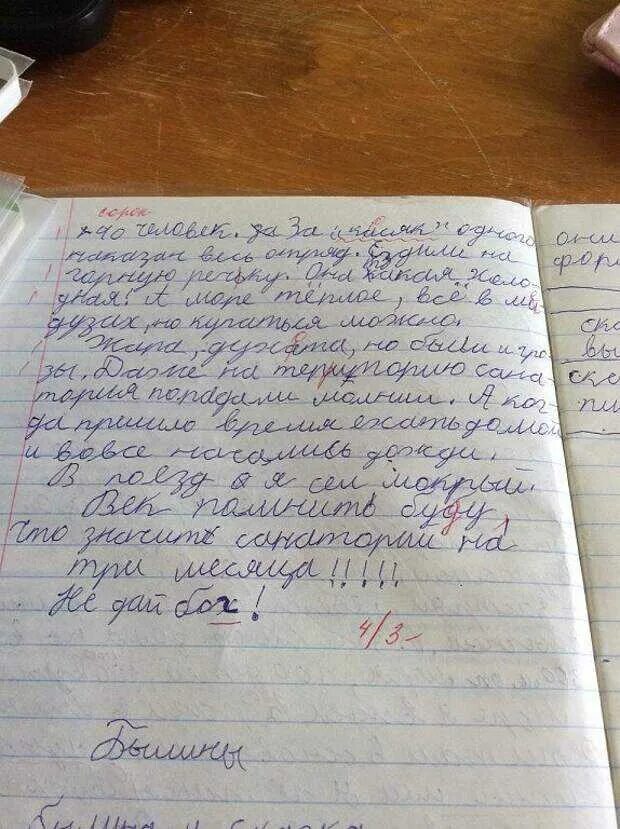 сорок
40 человек. За "касяк" одного
наказан весь отряд. Ездили на
горную речьку. Она такая холо-
дная! А море тёплое, всё в ме
дузах, но купаться можно.
Жара, духата, но были и гро-
зы. Даже на территорию сана-
тория попадали молнии. А ког-
да пришло время ехать домой
и вовсе начались дожди.
В поезд я сел мокрый.
Век помнить буду,
что значить санатории на
три месяца!!!!!
Не дай бох!
4/3-
Былины
былина и сказка
они
фор
ска
вы
ске